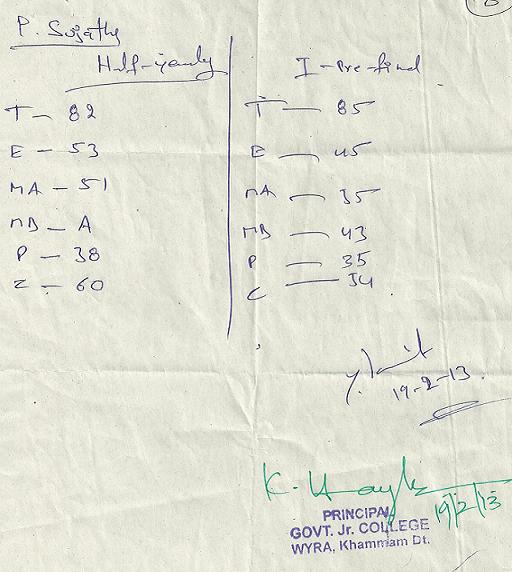 P. Sujatha
Half-yearly
T - 82
E - 53
MA - 51
MB - A
P - 38
Z - 60
I - Pre-final
T - 85
E - 45
MA - 35
MB - 43
P - 35
C - 34
19-2-13.
K.
19/2/13
PRINCIPAL
GOVT. Jr. COLLEGE
WYRA, Khammam Dt.